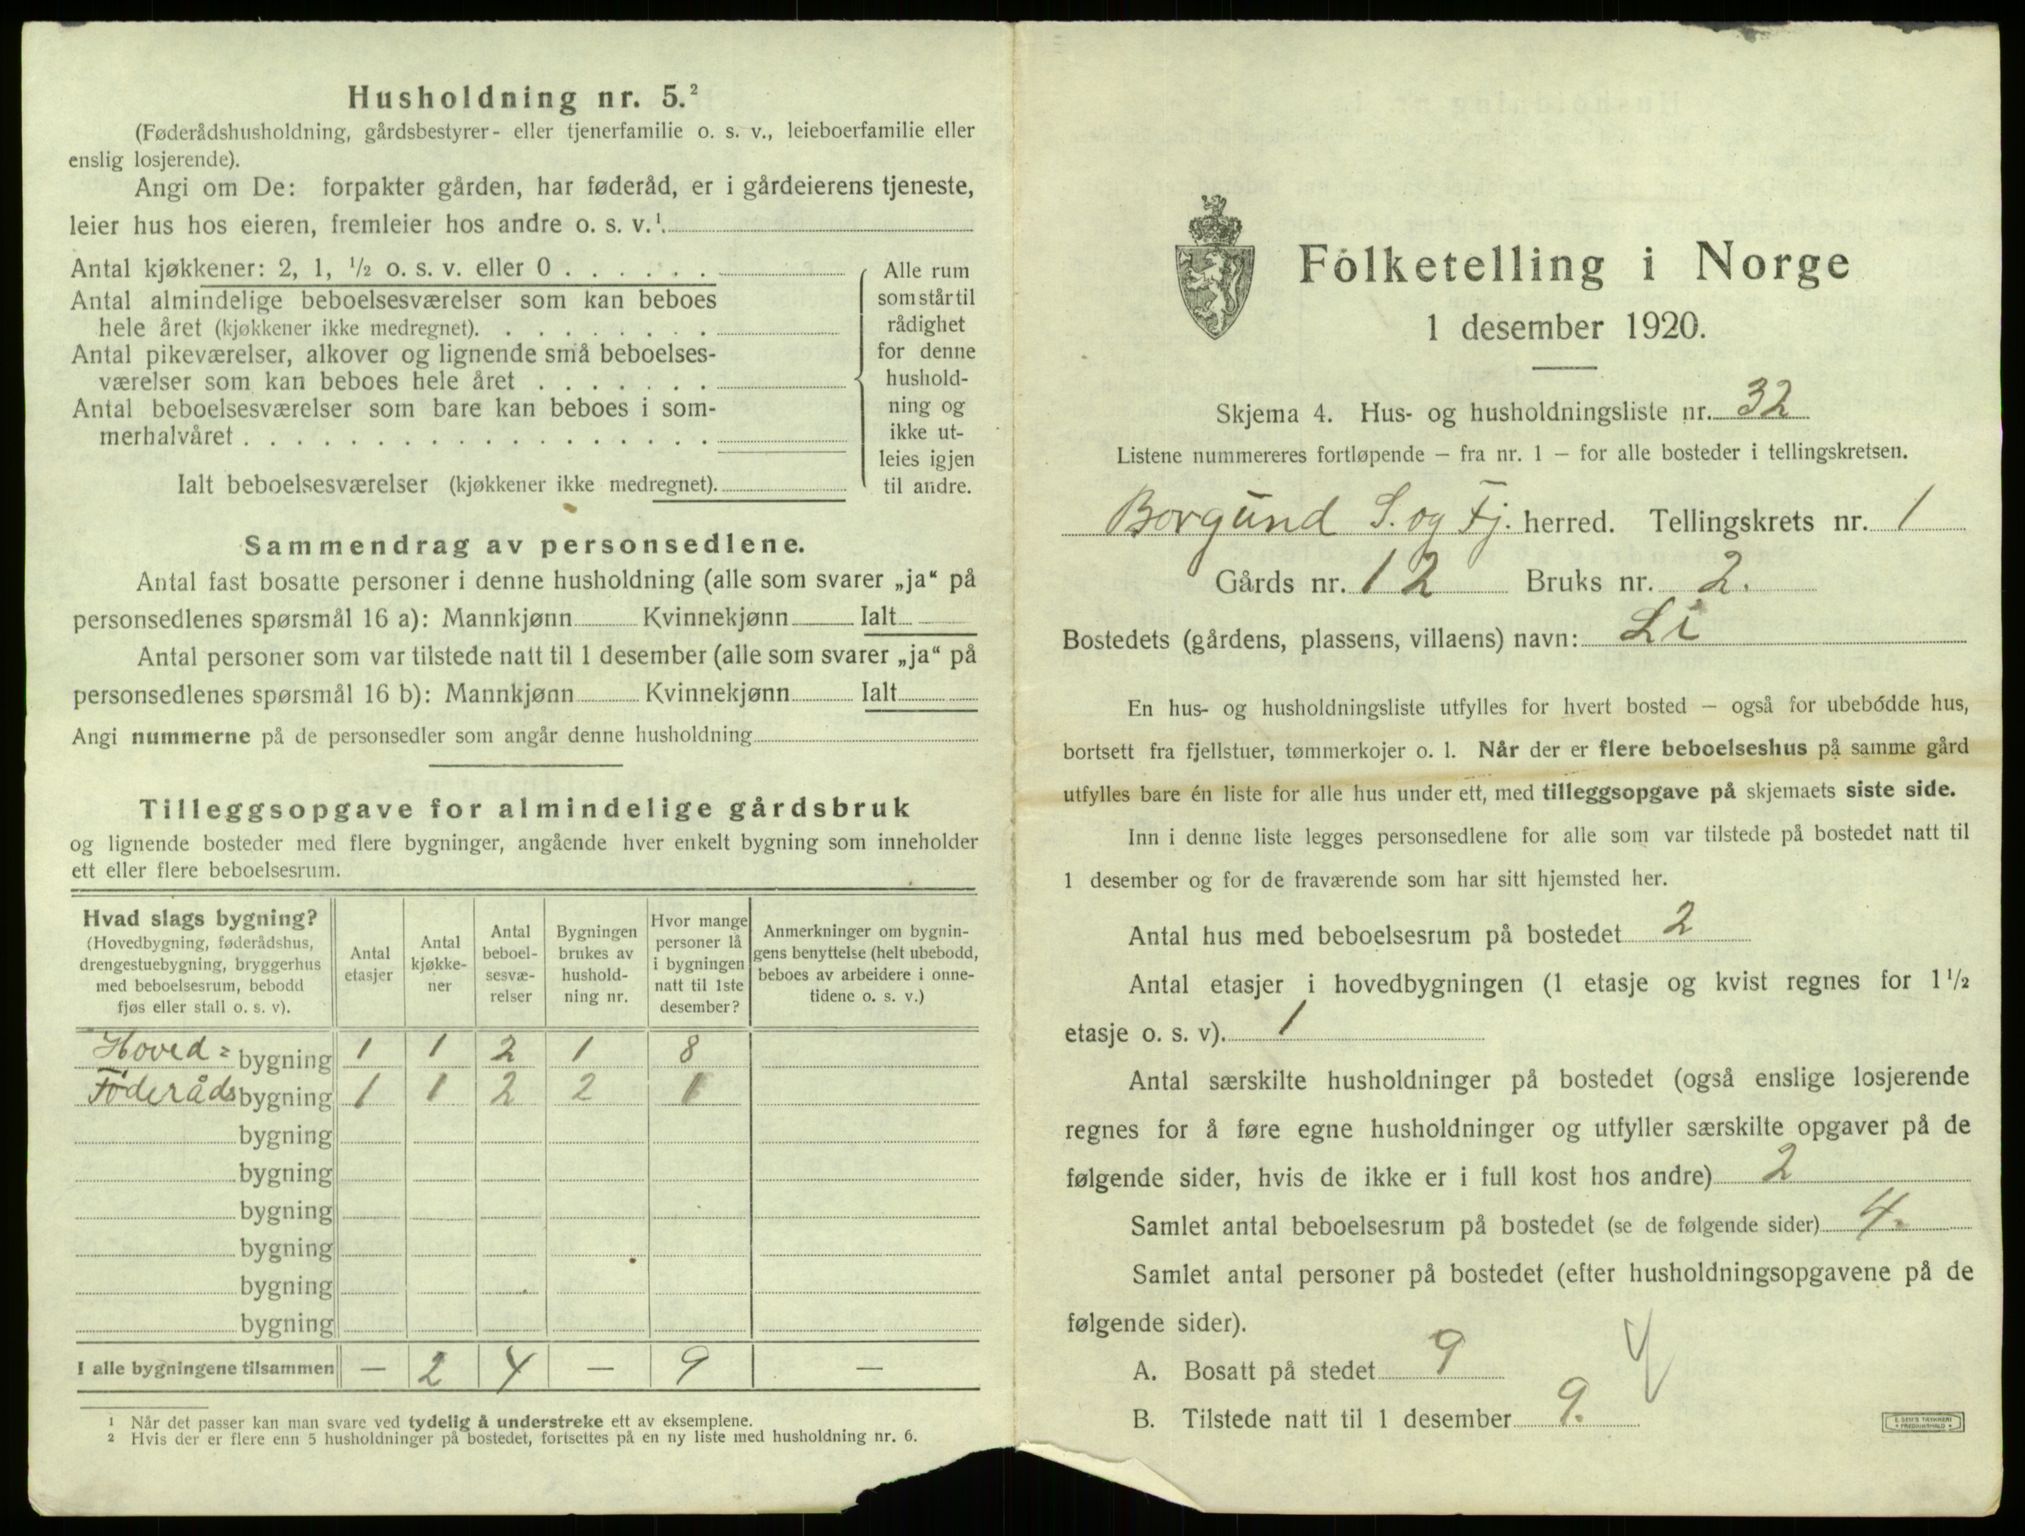 Husholdning nr. 5.²
(Føderådshusholdning, gårdsbestyrer- eller tjenerfamilie o. s. v., leieboerfamilie eller
enslig losjerende).
Angi om De: forpakter gården, har føderåd, er i gårdeierens tjeneste,
leier hus hos eieren, fremleier hos andre o. s. v.¹
Antal kjøkkener: 2, 1, ¹/₂ o. s. v. eller 0 . . . . . .
Antal almindelige beboelsesværelser som kan beboes
hele året (kjøkkener ikke medregnet). . . . . . . . .
Antal pikeværelser, alkover og lignende små beboelses-
værelser som kan beboes hele året . . . . . . .
Antal beboelsesværelser som bare kan beboes i som-
merhalvåret . . . . . . . . . . . . . . . . . .
Ialt beboelsesværelser (kjøkkener ikke medregnet).
Alle rum
som står til
rådighet
for denne
hushold-
ning og
ikke ut-
leies igjen
til andre.
Sammendrag av personsedlene.
Antal fast bosatte personer i denne husholdning (alle som svarer „ja“ på
personsedlenes spørsmål 16 a): Mannkjønn Kvinnekjønn Ialt
Antal personer som var tilstede natt til 1 desember (alle som svarer „ja“ på
personsedlenes spørsmål 16 b): Mannkjønn Kvinnekjønn Ialt
Angi nummerne på de personsedler som angår denne husholdning
Tilleggsopgave for almindelige gårdsbruk
og lignende bosteder med flere bygninger, angående hver enkelt bygning som inneholder
ett eller flere beboelsesrum.
Hvad slags bygning?
(Hovedbygning, føderådshus,
drengestuebygning, bryggerhus
med beboelsesrum, bebodd
fjøs eller stall o. s. v).
Antal
etasjer
Antal
kjøkke-
ner
Antal
beboel-
sesvæ-
relser
Bygningen
brukes av
hushold-
ning nr.
Hvor mange
personer lå
i bygningen
natt til 1ste
desember?
Anmerkninger om bygnin-
gens benyttelse (helt ubebodd,
beboes av arbeidere i onne-
tidene o. s. v.)
Hoved= bygning 1 1 2 1 8
Föderåds bygning 1 1 2 2 1
bygning
bygning
bygning
bygning
bygning
bygning
I alle bygningene tilsammen — 2 4 — 9 —
¹ Når det passer kan man svare ved tydelig å understreke ett av eksemplene.
² Hvis der er flere enn 5 husholdninger på bostedet, fortsettes på en ny liste med husholdning nr. 6.
Folketelling i Norge
1 desember 1920.
Skjema 4. Hus- og husholdningsliste nr. 32
Listene nummereres fortløpende – fra nr. 1 – for alle bosteder i tellingskretsen.
Borgund S. og Fj. herred. Tellingskrets nr. 1
Gårds nr. 12 Bruks nr. 2.
Bostedets (gårdens, plassens, villaens) navn: Li
En hus- og husholdningsliste utfylles for hvert bosted – også for ubebodde hus,
bortsett fra fjellstuer, tømmerkojer o. l. Når der er flere beboelseshus på samme gård
utfylles bare én liste for alle hus under ett, med tilleggsopgave på skjemaets siste side.
Inn i denne liste legges personsedlene for alle som var tilstede på bostedet natt til
1 desember og for de fraværende som har sitt hjemsted her.
Antal hus med beboelsesrum på bostedet 2
Antal etasjer i hovedbygningen (1 etasje og kvist regnes for 1 ¹/₂
etasje o. s. v). 1
Antal særskilte husholdninger på bostedet (også enslige losjerende
regnes for å føre egne husholdninger og utfyller særskilte opgaver på de
følgende sider, hvis de ikke er i full kost hos andre) 2
Samlet antal beboelsesrum på bostedet (se de følgende sider) 4.
Samlet antal personer på bostedet (efter husholdningsopgavene på de
følgende sider).
A. Bosatt på stedet 9
B. Tilstede natt til 1 desember 9.
E. SEM'S TRYKKERI
FREDRIKSHALD